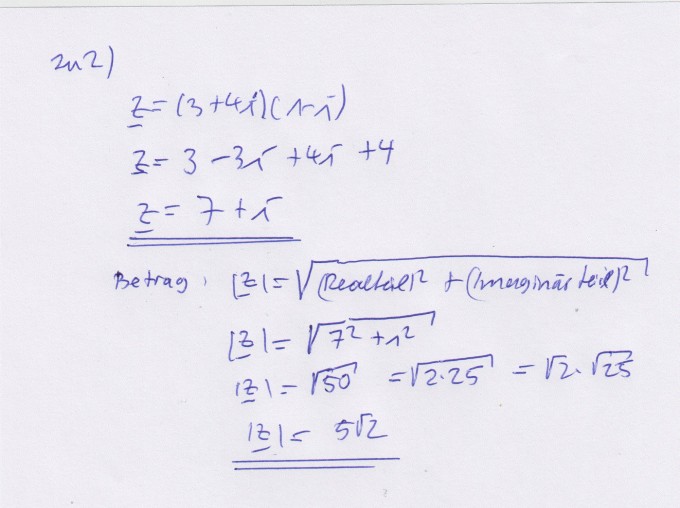 zu 2)
z = (3+4i)(1-i)
z = 3 -3i +4i +4
z = 7 + i
Betrag: |z| = √((Realteil)² + (Imaginärteil)²)
|z| = √(7² + 1²)
|z| = √50 = √(2·25) = √2·√25
|z| = 5√2